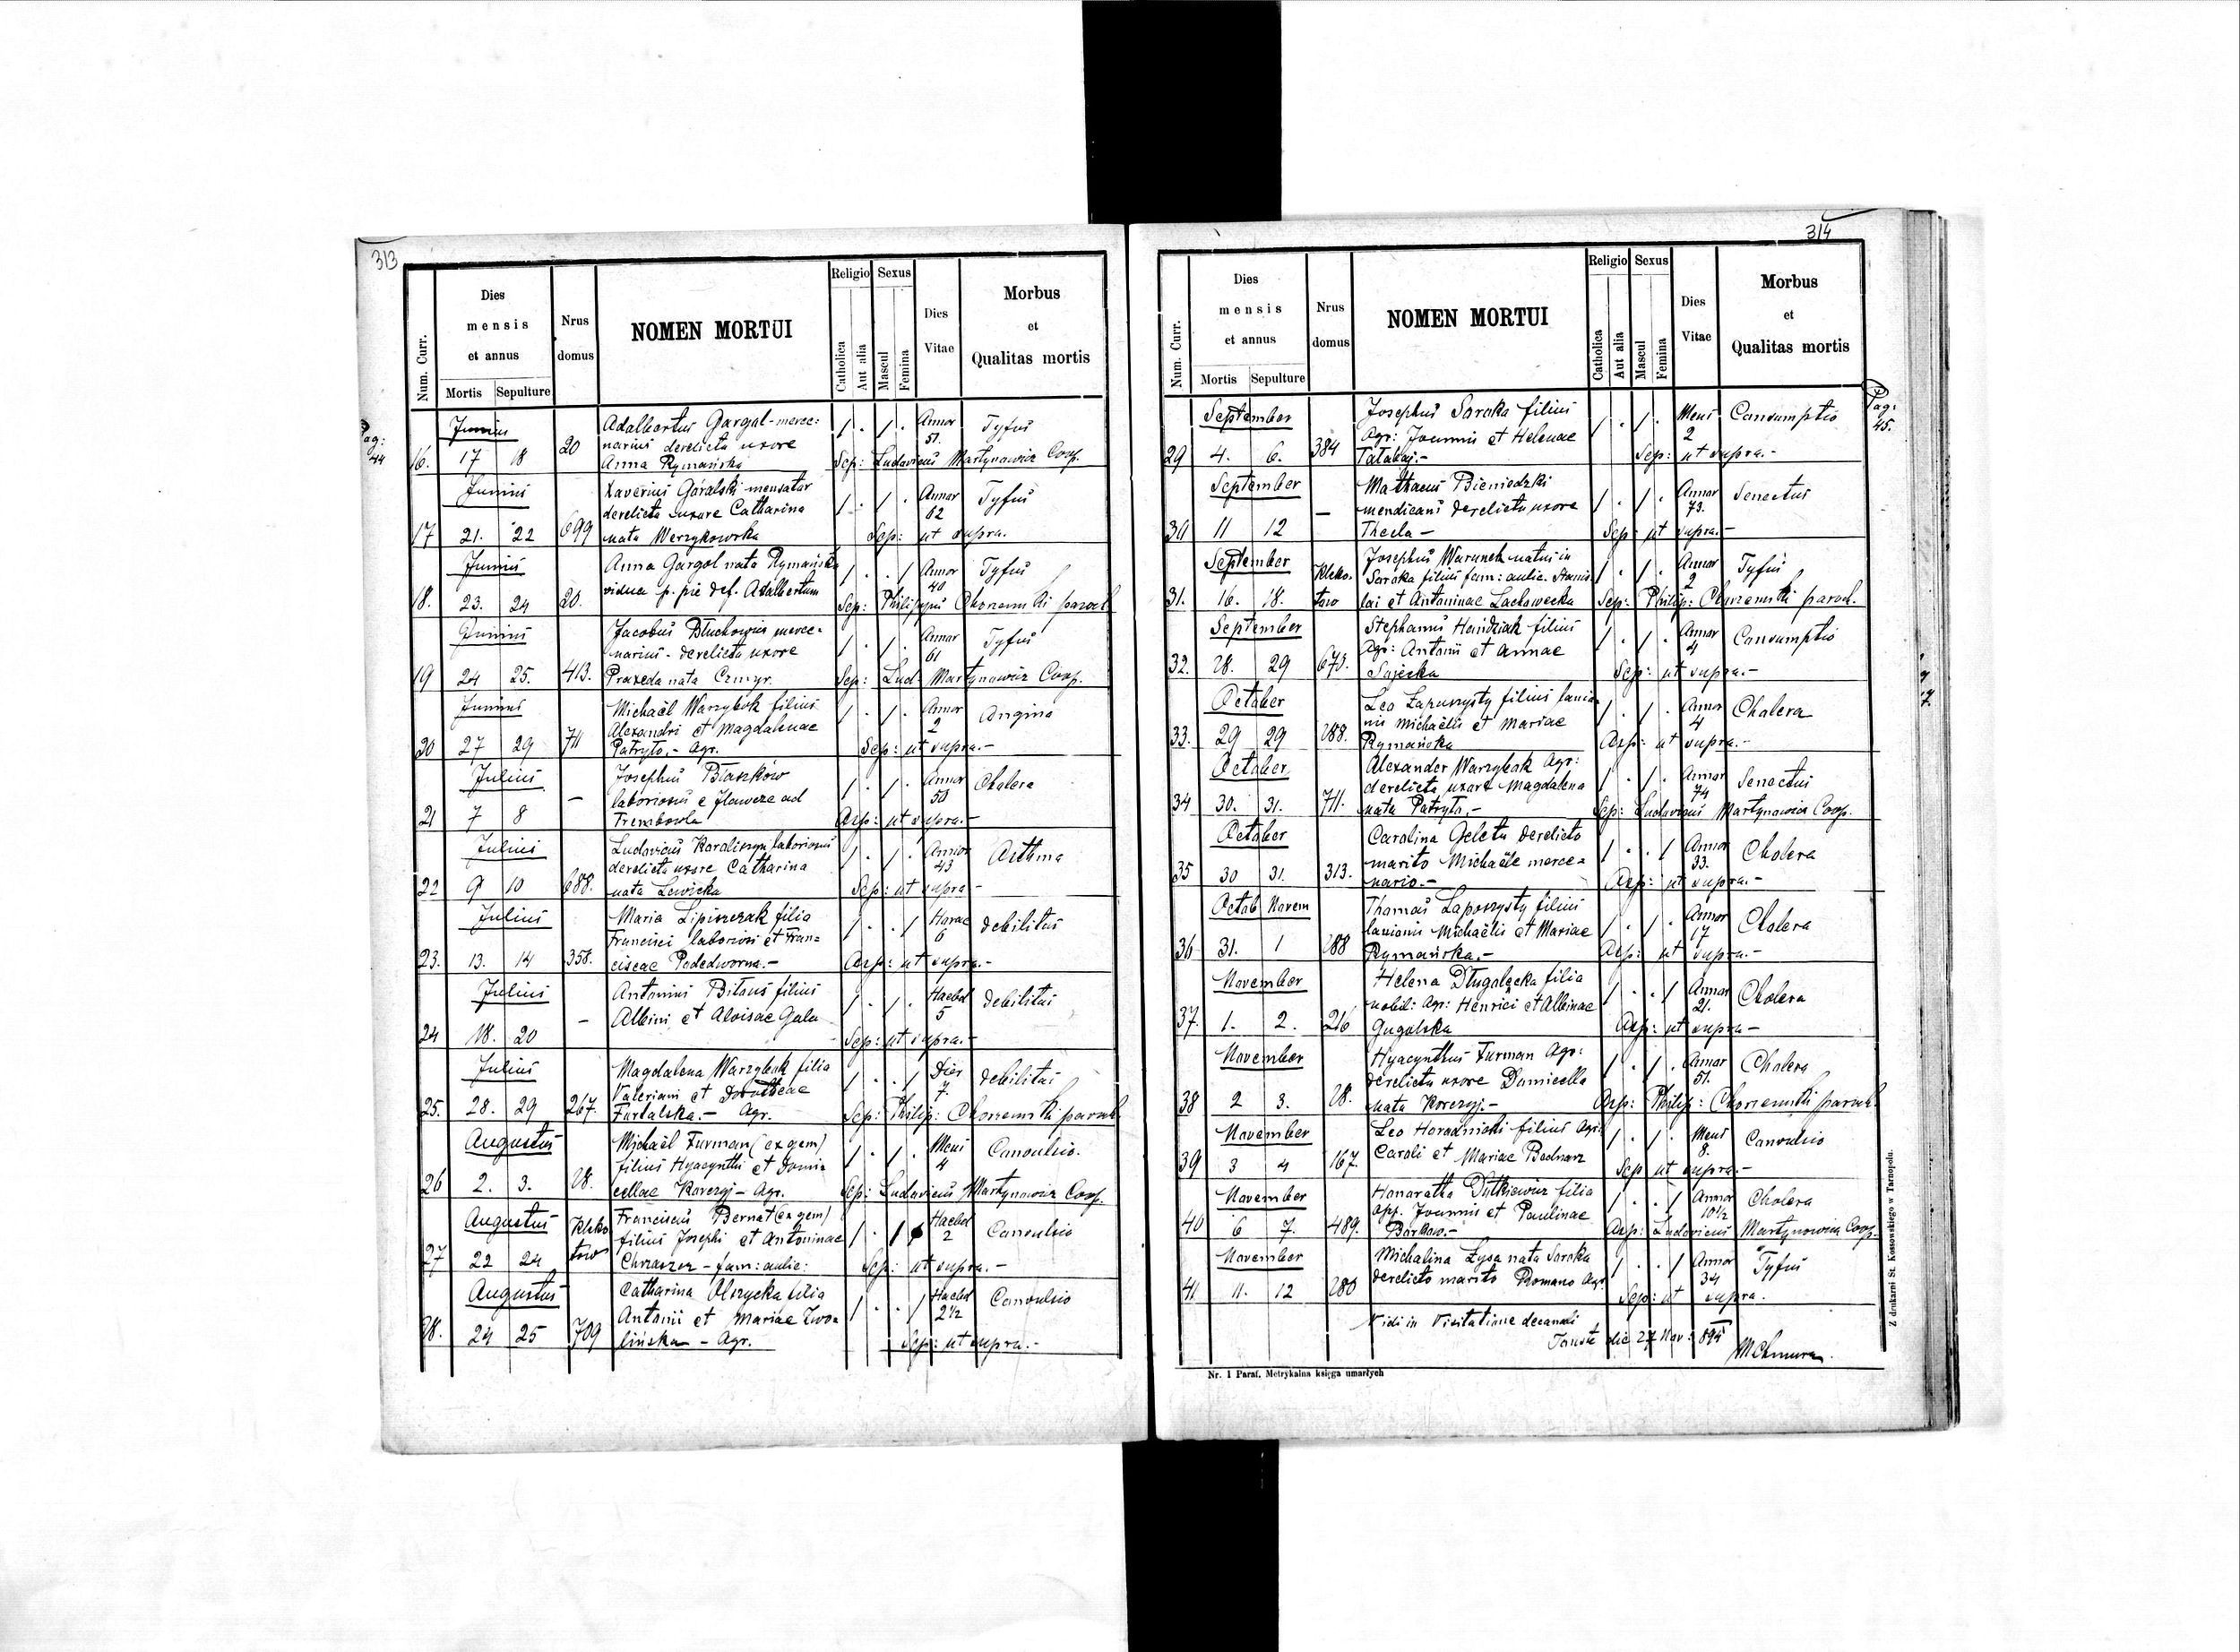 313
Num. Curr.
Dies mensis et annus
Mortis
Sepulture
Nrus domus
NOMEN MORTUI
Religio
Catholica
Aut alia
Sexus
Mascul
Femina
Dies Vitae
Morbus et Qualitas mortis
Pag: 44
Junius
Adalbertus Gargol - merce:
narius derelicta uxore
Anna Rymańska
16. 17 18 20 / . / . Annor 51. Tyfus
Sep: Ludovicus Martynowicz Coop.
Junius
Xaverius Góralski mensator
derelicta uxore Catharina
nata Warzykowska
17 21. 22 699 / . / . Annor 62 Tyfus
Sep: ut supra.
Junius
Anna Gargol nata Rymańska
vidua p. pie def. Adalbertum
18. 23. 24 20. / . . / Annor 40 Tyfus
Sep: Philippus Chorzemski paroch
Junius
Jacobus Błuchowicz merce-
narius - derelicta uxore
Praxeda nata Czmyr.
19 24 25. 413. / . / . Annor 61 Tyfus
Sep: Lud. Martynowicz Coop.
Junius
Michaël Warzybok filius
Alexandri et Magdalenae
Patryto. - Agr.
20 27 29 711 / . / . Annor 2 Angina
Sep: ut supra. -
Julius
Josephus Błaszków
laboriosus e Iławcze ad
Trembowla
21 7 8 - / . / . Annor 50 Cholera
Asp: ut supra. -
Julius
Ludovicus Karaliszyn laboriosus
derelicta uxore Catharina
nata Lewicka
22 9 10 688. / . / . Annor 43 Asthma
Sep: ut supra -
Julius
Maria Lipiszczak filia
Francisci laboriosi et Fran=
ciscae Pododworna. -
23. 13. 14 358. / . . / Horae 6 debilitas
Asp: ut supra. -
Julius
Antonius Bitous filius
Albini et Aloisae Gala
24 18. 20 - / . / . Haebd 5 debilitas
Sep: ut supra. -
Julius
Magdalena Warzybok filia
Valeriani et Dorotheae
Furtalska. - Agr.
25. 28. 29 267. / . . / Dies 7. debilitas
Sep: Philip: Chorzemski paroch
Augustus
Michaël Furman (ex gem)
filius Hyacynthi et Domi-
cellae Korczyj - Agr.
26 2. 3. 28. / . / . Mens 4 Convulsio.
Sep: Ludovicus Martynowicz Coop.
Augustus
Franciscus Bernat (ex gem)
filius Josephi et Antoninae
Chrzaszcz - fam: aulic:
27 22 24 Kleko tow / . / Haebd 2 Convulsio
Sep: ut supra. -
Augustus
Catharina Olszycka filia
Antonii et Mariae Zwo-
lińska - Agr.
28. 24 25 709 / . . / Haebd 2½ Convulsio
Sep: ut supra. -
314
Num. Curr.
Dies mensis et annus
Mortis
Sepulture
Nrus domus
NOMEN MORTUI
Religio
Catholica
Aut alia
Sexus
Mascul
Femina
Dies Vitae
Morbus et Qualitas mortis
Pag: 45.
September
Josephus Soroka filius
Agr: Joannis et Helenae
Tatabaj. -
29 4. 6. 384 / . / . Mens 2 Consumptio
Sep: ut supra. -
September
Mathaeus Bieniedzki
mendicans derelicta uxore
Thecla -
30 11 12 - / . / . Annor 73. Senectus
Sep: ut supra. -
September
Josephus Warunek natus in
Soroka filius fam: aulic. Stanis
lai et Antoninae Lachowecka
31. 16. 18. Kleko. tow / . / . Annor 2 Tyfus
Sep: Philip: Chorzemski paroch.
September
Stephanus Handziak filius
Agr: Antonii et Annae
Sajecka
32. 28. 29 673. / . / . Annor 4 Consumptio
Sep: ut supra. -
October
Leo Łapuszysty filius lanio-
nis Michaëlis et Mariae
Rymańska
33. 29 29 288. / . / . Annor 4 Cholera
Asp: ut supra. -
October
Alexander Warzybok Agr:
derelicta uxore Magdalena
nata Patryto. -
34 30. 31. 711. / . / . Annor 74 Senectus
Sep: Ludovicus Martynowicz Coop.
October
Carolina Geleta derelicto
marito Michaële merce=
nario. -
35 30 31. 313. / . . / Annor 33. Cholera
Asp: ut supra. -
Octob Novem
Thomas Laposzysty filius
lanionis Michaëlis et Mariae
Rymańska. -
36 31. 1 288 / . / . Annor 17 Cholera
Asp: ut supra. -
November
Helena Długołęcka filia
nobil: Agr: Henrici et Albinae
Gugolska
37. 1. 2. 216 / . . / Annor 21. Cholera
Asp: ut supra -
November
Hyacynthus Furman Agr:
derelicta uxore Domicella
nata Korczyj. -
38 2 3. 28. / . / . Annor 51. Cholera
Asp: Philip: Chorzemski paroch.
November
Leo Horodnicki filius Agr:
Caroli et Mariae Bednarz
39 3 4 167. / . / . Mens 8. Convulsio
Sep ut supra. -
November
Honoratha Dutkiewicz filia
opf. Joannis et Paulinae
Borkow. -
40 6 7. 489. / . . / Annor 10½ Cholera
Asp: Ludovicus Martynowicz Coop.
November
Michalina Łysa nata Soroka
derelicto marito Romano Agr.
41 11. 12 280 / . . / Annor 34 Tyfus
Sep: ut supra.
Vidi in Visitatione decanali
Touste die 27 Nov: 894
MChmura
Nr. 1 Paraf. Metrykalna księga umarłych
Z drukarni St. Kossowskiego w Tarnopolu.